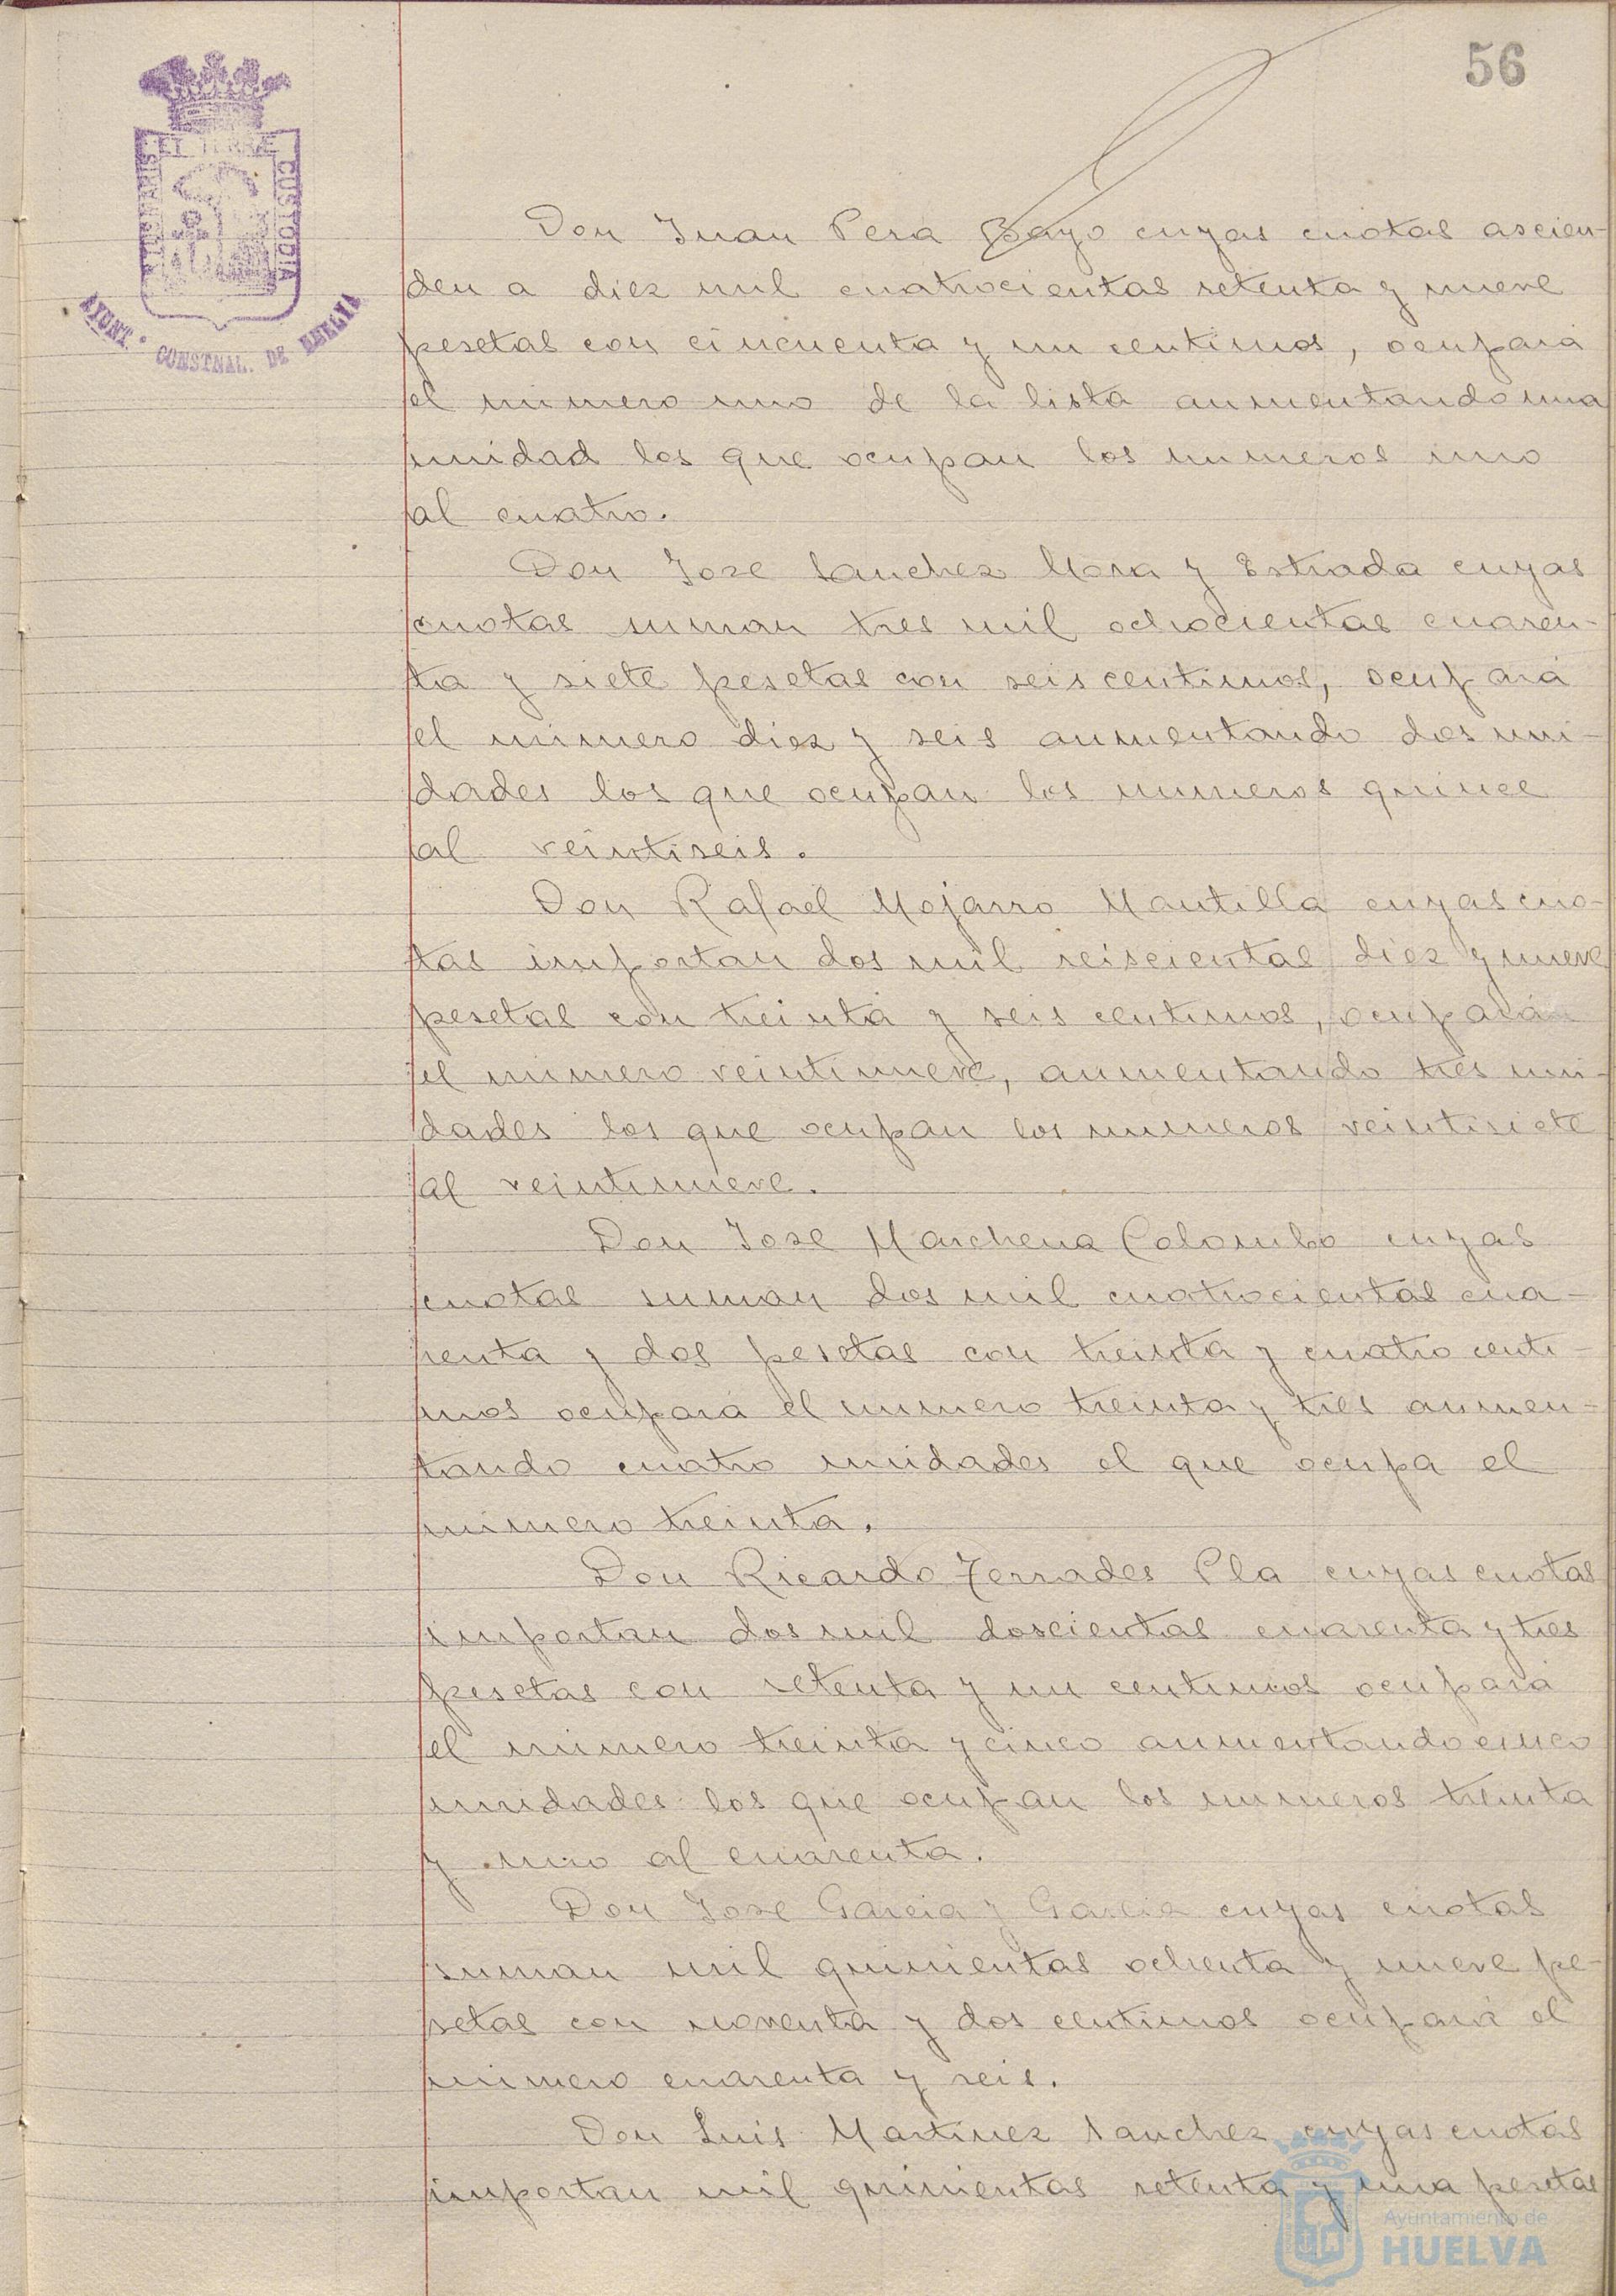 56
PORTUS MARIS ET TERRÆ CUSTODIA
AYUNT.º CONSTNAL. DE HUELVA
Don Juan Pera Bayo cuyas cuotas ascien-
den a diez mil cuatrocientas setenta y nueve
pesetas con cincuenta y un centimos, ocupará
el numero uno de la lista aumentando una
unidad los que ocupan los numeros uno
al cuatro.
Don Jose Sanchez Mora y Estrada cuyas
cuotas suman tres mil ochocientas cuaren-
ta y siete pesetas con seis centimos, ocupará
el numero diez y seis aumentando dos uni-
dades los que ocupan los numeros quince
al veintiseis.
Don Rafael Mojarro Mantilla cuyas cuo-
tas importan dos mil seiscientas diez y nueve
pesetas con treinta y seis centimos, ocupará
el numero veintinueve, aumentando tres uni-
dades los que ocupan los numeros veintisiete
al veintinueve.
Don Jose Marchena Colombo cuyas
cuotas suman dos mil cuatrocientas cua-
renta y dos pesetas con treinta y cuatro centi-
mos ocupará el numero treinta y tres aumen-
tando cuatro unidades el que ocupa el
numero treinta.
Don Ricardo Terrades Pla cuyas cuotas
importan dos mil doscientas cuarenta y tres
pesetas con setenta y un centimos ocupará
el numero treinta y cinco aumentando cinco
unidades los que ocupan los numeros treinta
y uno al cuarenta.
Don Jose Garcia y Garcia cuyas cuotas
suman mil quinientas ochenta y nueve pe-
setas con noventa y dos centimos ocupará el
numero cuarenta y seis.
Don Luis Martinez Sanchez cuyas cuotas
importan mil quinientas setenta y una pesetas
Ayuntamiento de
HUELVA